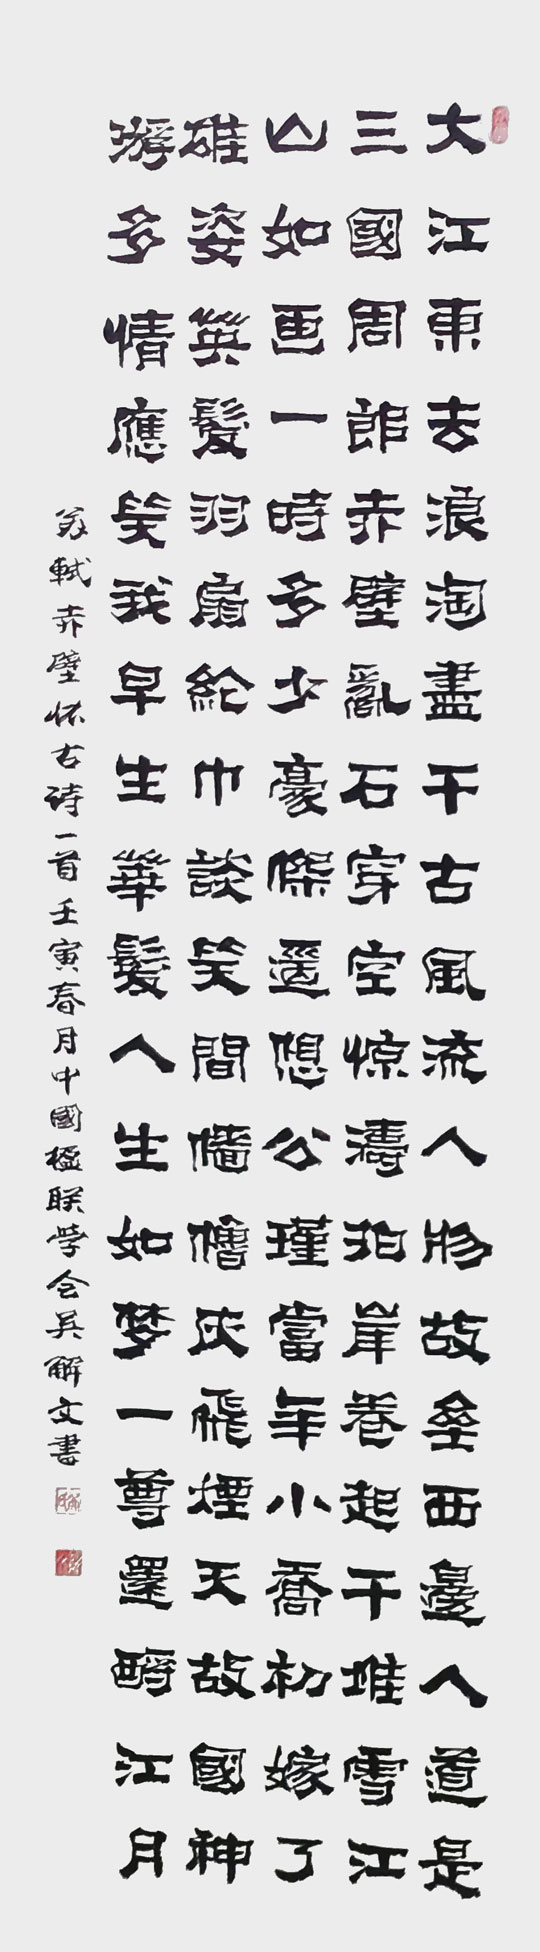 大江東去浪淘盡千古風流人物故壘西邊人道是
三國周郎赤壁亂石穿空惊濤拍岸卷起千堆雪江
山如画一時多少豪傑遥想公瑾當年小喬初嫁了
雄姿英發羽扇綸巾談笑間檣櫓灰飛煙天故國神
游多情應笑我早生華髮人生如梦一尊還酹江月
苏軾赤壁怀古诗一首壬寅春月中國楹联学会吴解文書